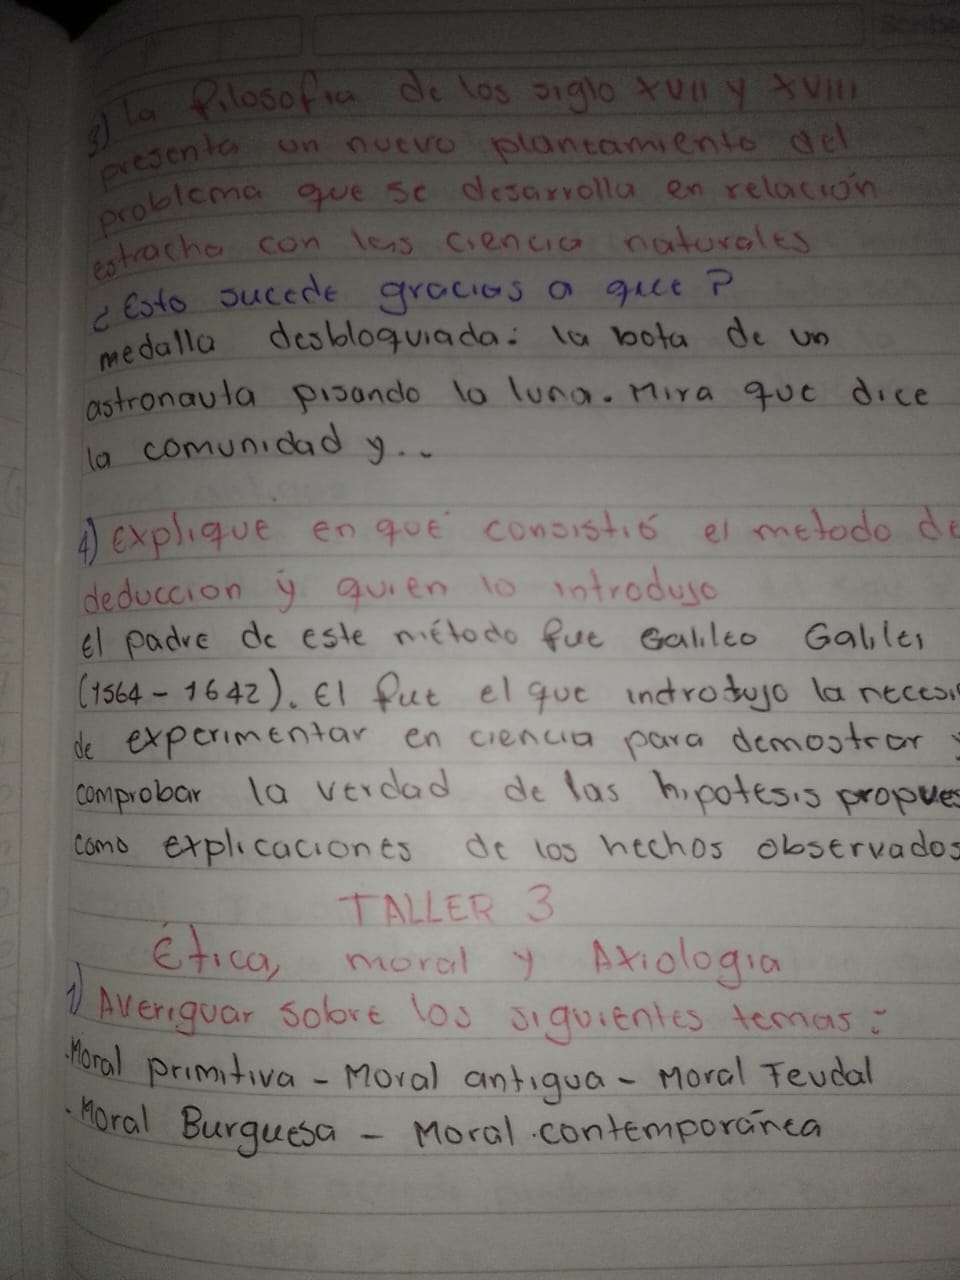 Scribe
3) la filosofia de los siglo XVII y XVIII
presenta un nuevo planteamiento del
problema que se desarrolla en relación
estracha con las ciencia naturales
¿Esto sucede gracias a que?
medalla desbloquiada: la bota de un
astronauta pisando la luna. Mira que dice
la comunidad y...
4) Explique en qué consistió el metodo de
deduccion y quien lo introdujo
El padre de este método fue Galileo Galilei
(1564 - 1642). El fue el que indrotujo la necesi
de experimentar en ciencia para demostrar y
comprobar la verdad de las hipotesis propues
como explicaciones de los hechos observados
TALLER 3
Ética, moral y Axiologia
1) Averiguar sobre los siguientes temas:
.Moral primitiva - Moral antigua - Moral Feudal
.Moral Burguesa - Moral.contemporánea